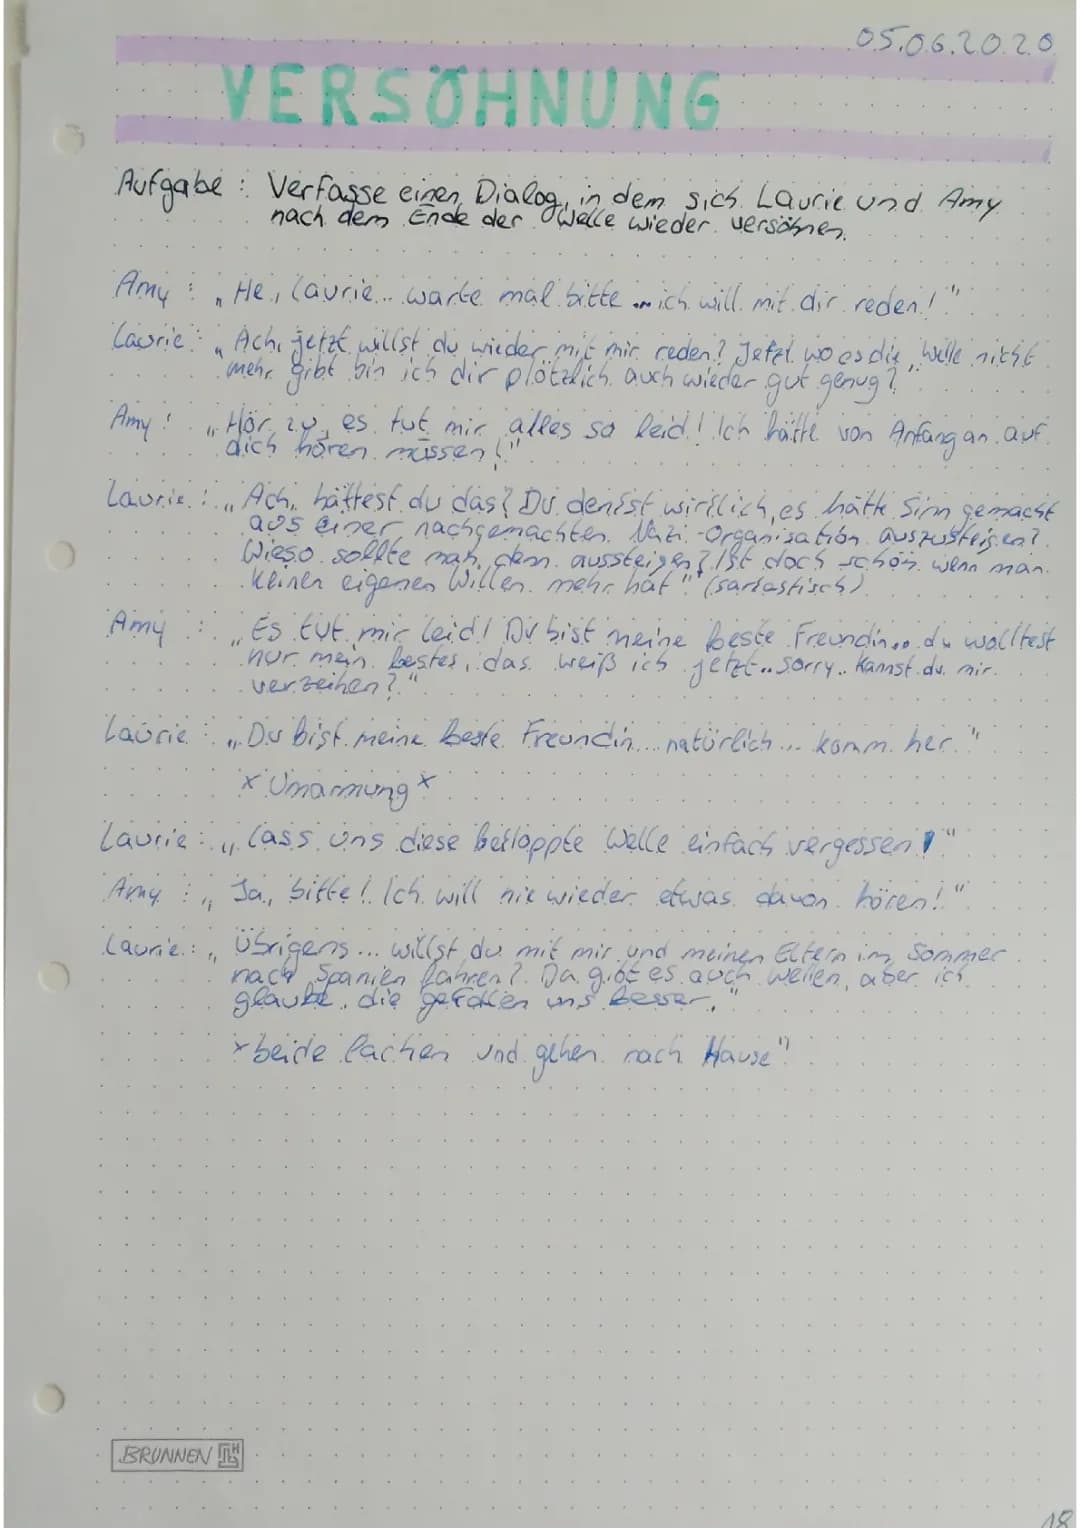 05.06.2020
VERSÖHNUNG
Aufgabe : Verfasse einen Dialog, in dem sich Laurie und Amy
nach dem Ende der Welle wieder versöhnen.
Amy : „He, Laurie... warte mal bitte ... ich will mit dir reden!"
Laurie: „Ach, jetzt willst du wieder mit mir reden? Jetzt wo es die „Welle nicht
mehr gibt bin ich dir plötzlich auch wieder gut genug?
Amy : „Hör zu, es tut mir alles so leid! Ich hätte von Anfang an auf
dich hören müssen!"
Laurie : „Ach, hättest du das? Du denkst wirklich, es hätte Sinn gemacht
aus einer nachgemachten Nazi-Organisation auszusteigen?
Wieso sollte man denn aussteigen? Ist doch schön wenn man
keinen eigenen Willen mehr hat" (sarkastisch)
Amy : „Es tut mir leid! Du bist meine beste Freundin... du wolltest
nur mein bestes, das weiß ich jetzt.. sorry.. kannst du mir
verzeihen?"
Laurie : „Du bist meine beste Freundin... natürlich ... komm her."
x Umarmung x
Laurie : „Lass uns diese bekloppte Welle einfach vergessen!"
Amy : „Ja, bitte! Ich will nie wieder etwas davon hören!"
Laurie : „Übrigens ... willst du mit mir und meinen Eltern im Sommer
nach Spanien fahren? Da gibt es auch wellen, aber ich
glaube, die gefallen uns besser."
x beide lachen und gehen nach Hause"
BRUNNEN
18